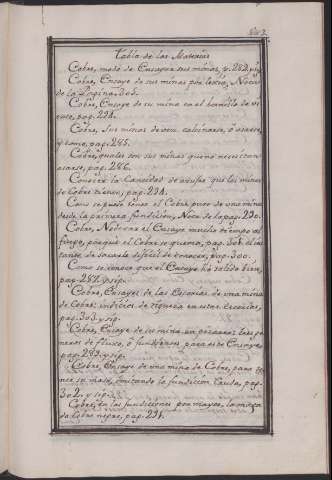 Tabla de las Materias
Cobre, modo de Ensayar sus minas, p. 282, y sig.
Cobre, Ensaye de sus minas por lexia, Nota
de la Pagina 305.
Cobre, Ensaye de su mina en el hornillo de vi
ento, pag. 294.
Cobre, sus minas deven calcinarse, ó asarse,
y como, pag. 285.
Cobre, quales son sus minas que no necesitan
asarse, pag. 286.
Conocer la Cantidad de azufre que las minas
de Cobre tienen, pag. 294.
Como se puede tener el Cobre puro de una mina
desde la primera fundicion, Nota de la pag. 290.
Cobre, No dexar el Ensaye mucho tiempo al
fuego, porque el Cobre se quema, pag. 308. el ins
tante de sacarle dificil de conocer, pag. 300.
Como se conoce que el Ensaye há salido bien,
pag. 287. y sig.
Cobre, Ensayes de las Escorias de una mina
de Cobre: indicios de riqueza en estas Escorias,
pag. 303. y sig.
Cobre, Ensaye de su mina
de fluxo, ó fundentes para este Ensaye,
pag. 283. y sig.
Cobre, Ensaye de una mina de Cobre, para co
nocer su mata, imitando la fundicion Cruda, pag.
302. y sig.
Cobre, en las fundiciones por mayor, la mezcla
de Cobre negro, pag. 291.